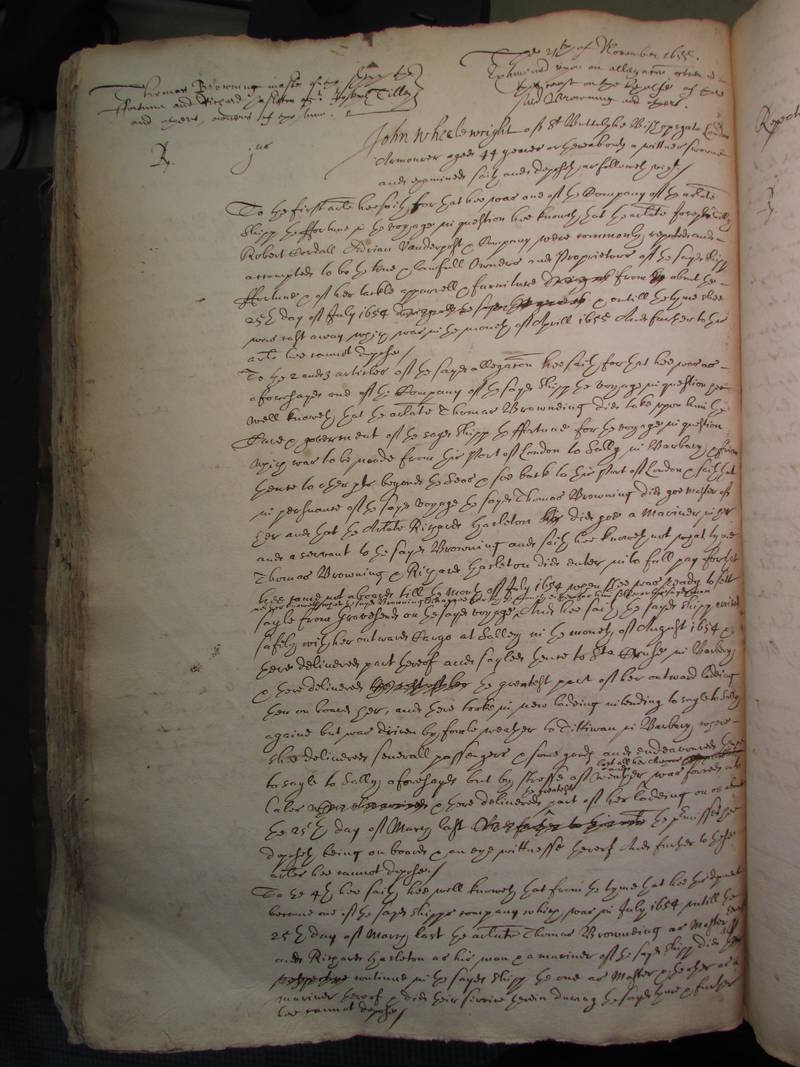 The 21th of November 1655.
Examined upon an allegation given in
the Court on the behalfe of the
said Browning and others.
Thomas Browning master of the shipp the
ffortune and Richard Hasleton against Joseph Tilley
and others, owners of the same.
R. jus
John Wheelewright of St Buttolphs Bishopsgate London
Armourer aged 44 yeares or thereabouts a wittnes sworne
and examined saith and deposeth as followeth vizt
To the first arlte hee saith that hee was one of the Company of the arlate
shipp the ffortune in the voyage in question hee knoweth that the arlate Joseph Tilley
Robert Cordall Adrian Vanderpost & Company were commonly reputed and
accompted to be the true & lawfull Owners and Proprietors of the sayd shipp
ffortune & of her tackle apparrell & furniture from about the
25th day of July 1654 & untill the tyme shee
was cast away which was in the moneth of Aprill 1655 And further to this
arlte hee cannot depose
To the 2 and 3 articles of the sayd allegation hee saith that hee was as
aforesayd one of the Company of the sayd shipp the voyage in question
well knoweth that the arlate Thomas Browning did take upon him the
Care & goverment of the sayd shipp the ffortune for the voyage in question
which was to be made from this Port of London to Sally in Barbary & from
thence to other pts beyond the Seas & soe back to this Port of London & saith that
in persuance of the sayd voyage the sayd Thomas Browning did goe Master of
her and that the Arlate Richard Hasleton did goe a Mariner in her
and a servant to the sayd Browning and saith hee knoweth not what tyme
Thomas Browning & Richard Hasleton did enter into full pay for that
hee came not aboard till the moneth of July 1654 when shee was ready to sett
sayle from Gravesend on the sayd voyage, And hee saith the sayd shipp arived
safely with her outward Cargo at Salley in the moneth of August 1654 &
there delivered part thereof and sayled thence to Sta Cruse in Barbary
& there delivered the greatest part of her outward lading
then on board her, and there tooke in new lading intending to sayle to Sally
againe but was driven by fowle weather to Tittiwan in Barbary where
shee delivered severall passengers & some goods and endeavoured
to sayle to Sally aforesayd but by stresse of weather was forced into
Cales & there delivered the greatest part of her ladding on or about
the 25th day of March last hee
deposeth being on board & an eye wittnesse thereof And further to these
arlates hee cannot depose./
To the 4th hee saith hee well knoweth that from the tyme that hee this deponent
became one of the sayd shipps company which was in July 1654 untill the
25th day of March last the arlate Thomas Browning as Master
and Richard Hasleton as his man & a mariner of the sayd shipp did
continue in the sayd shipp the one as Master & the other as a
mariner thereof & did their service therein during the sayd tyme & further
hee cannot depose/